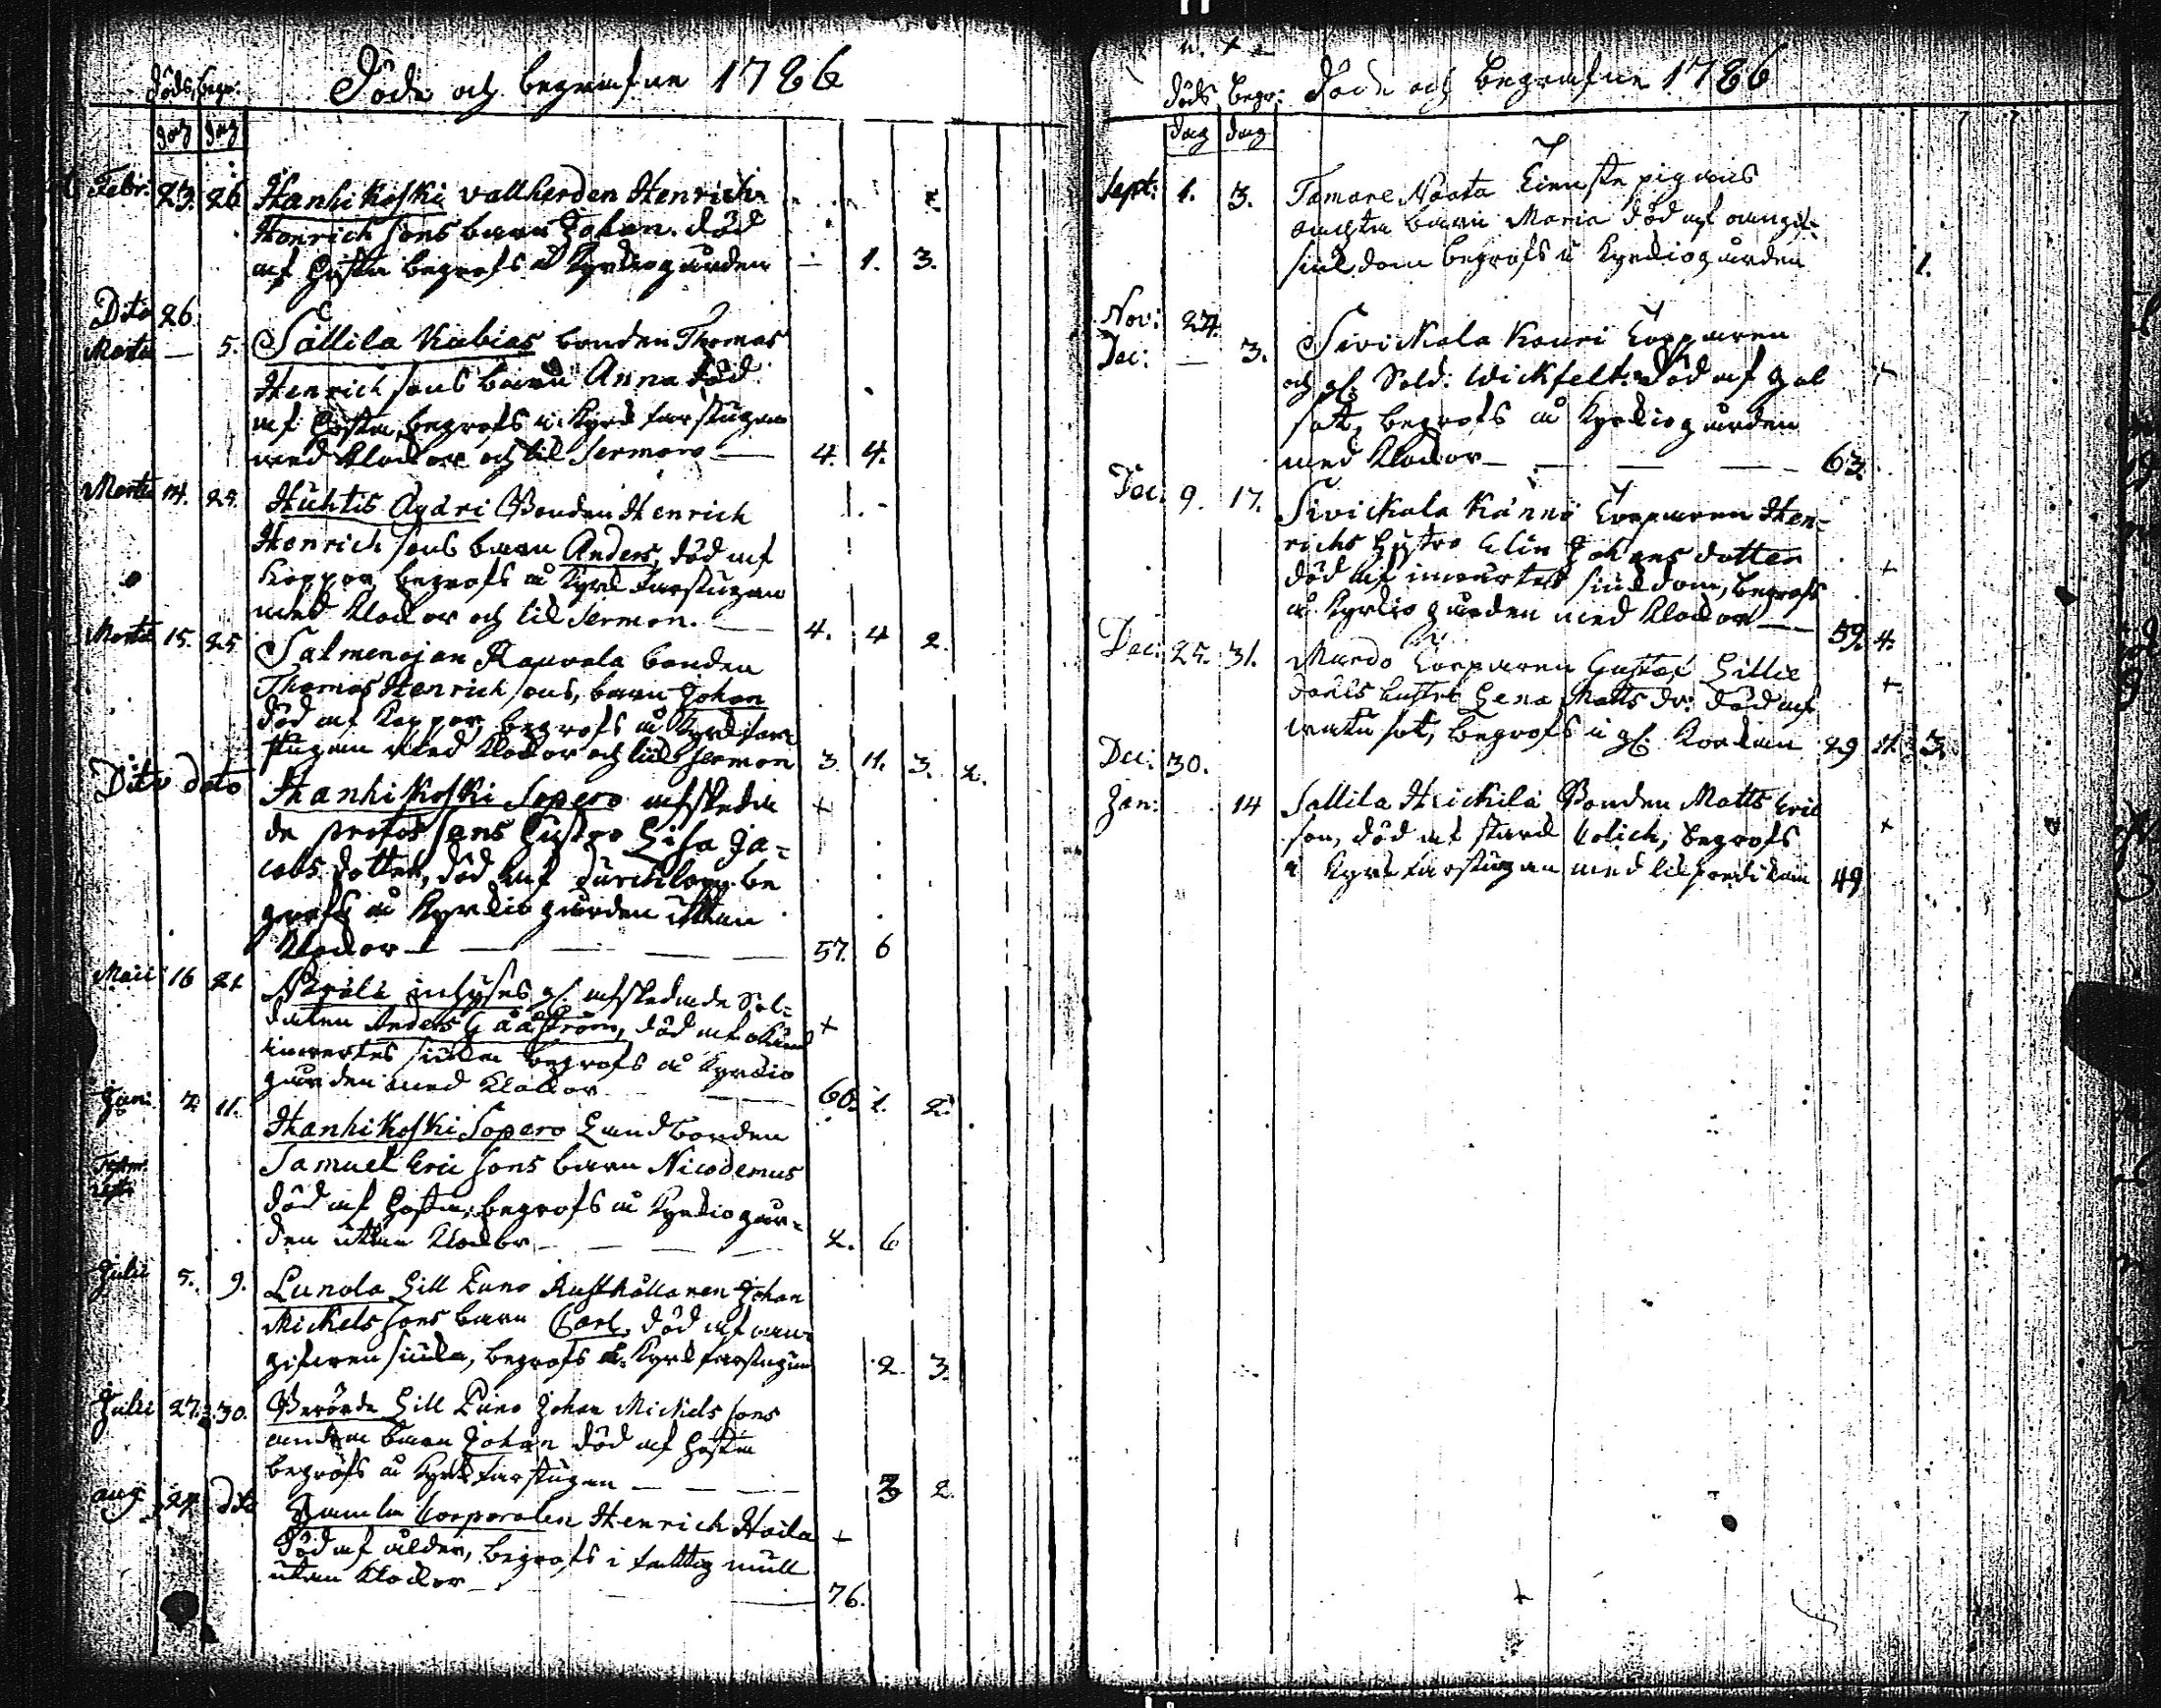 Döde och begrafne 1786
döds begr:
dag dag
Febr: 23. 26 Hanhikoski vallherden Henrich
Henrich sons barn Johan. död
af hosta begrofs å Kyrkiogården — 1. 3.
Dito 26.
Martii — 5. Sällilä Kubias bonden Thomas
Henrich sons barn Anna död
af hosta, begrofs i Kyrk farstugan
med klockor och lik Sermon — 4. 4.
Martii 14. 25. Huhtis Aydri Bonden Henrich
Henrich sons barn Anders, död af
Koppor begrofs å Kyrk farstugan
med klockor och lik Sermon. — 4. 4 2.
Martii 15. 25 Salmenojan Rauvola bonden
Thomas Henrich sons, barn Johan
död af Koppor, begrofs å Kyrk far
stugan med klockor och lik sermon 3. 11. 3. 2.
Dito dato Hanhikoski Sopero afskeda
de profos sons hustro Lisa Ja-
cobs dotter, död af be
grofs å Kyrkiogården uttan
klockor — — — 57. 6
Maii 16 21 inhyses gl. afskedade Sol-
daten Anders Gååström, död af okänd
invertes siuka begrofs å Kyrkio
gården med klockor — 66. 1. 2.
Jun: 7 11. Hanhikoski Sopero Landbonden
Samuel Eric sons barn Nicodemus
död af hosta, begrofs å Kyrkiogår-
den uttan klockor — — 2. 6
Julii 5. 9. Lunola Lill Tuno Rusthållaren Johan
Mickels sons barn Carl, död af an-
gifven siuka, begrofs Kyrk farstugun 2 3.
Julii 27. 30. Lill Tuno Johan Mickels sons
andra barn Johan död af hosta
begrofs å Kyrk farstugan — — 3 2.
aug 27 dito Gamla Corporalen Henrich Hoila +
död af ålder, begrofs i fattig mull
uttan klockor — 76.
döds begr: Döde och begrafne 1786
dag dag
Sept: 1. 3. Tamare Naata Tienste pigans
oächta barn Maria död af oangif-
siukdom begrofs å Kyrkiogården 1.
Nov: 24.
Dec: — 3. Sivickala Kouri Torparen
och gl. Sold: Wickfelt. död af gul
sot, begrofs å Kyrkiogården
med klockor — — — 63.
Dec: 9. 17. Sivickala Kännö Torparen Hen-
richs hustro Elin Johans dotter
död af invärtes siukdom, begrofs
å Kyrkiogården med klockor — 59. 4.
Dec: 25. 31. Mardo Torparen Gustaf
hustro Lena Matts dr: död af
sot, begrofs i gl. Korkan 29 11. 3.
Dec: 30.
Jan: 14 Sallila Heickilä Bonden Matts Eric
son, död af starck Colich, begrofs
i Kyrk farstugan med lik predikan 49